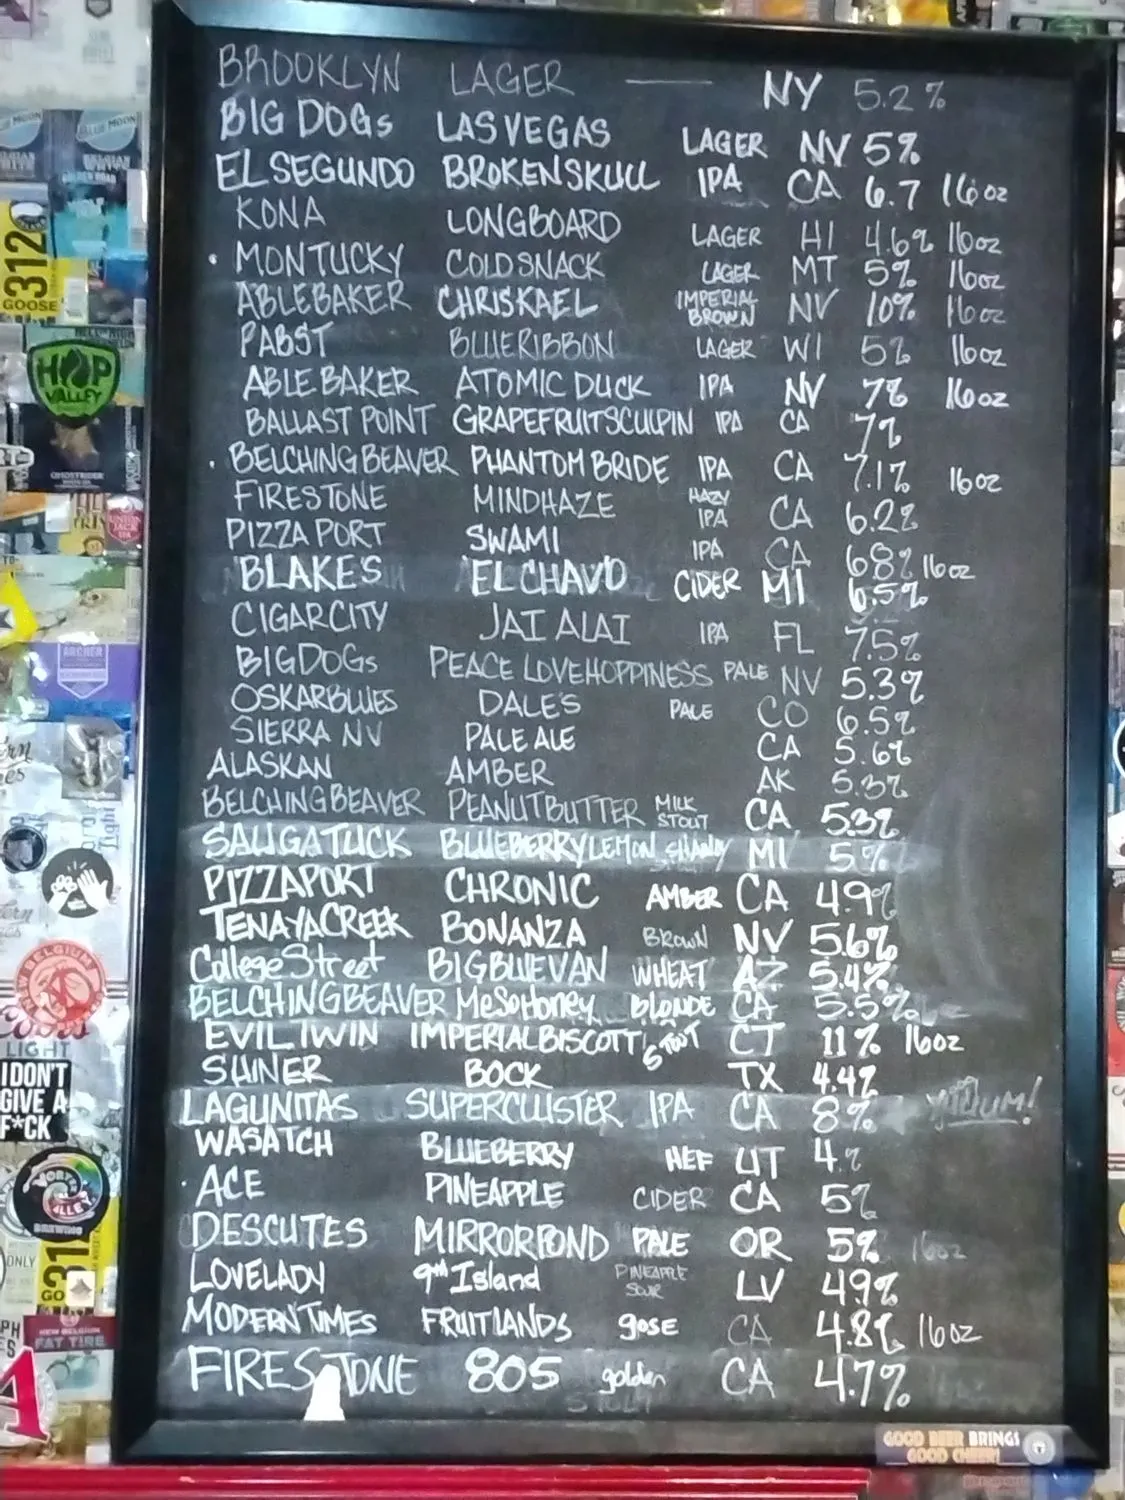 BROOKLYN LAGER — NY 5.2%
BIG DOGs LAS VEGAS LAGER NV 5%
EL SEGUNDO BROKEN SKULL IPA CA 6.7 16oz
KONA LONGBOARD LAGER HI 4.6% 16oz
• MONTUCKY COLD SNACK LAGER MT 5% 16oz
ABLEBAKER CHRIS KAEL IMPERIAL BROWN NV 10% 16oz
PABST BLUE RIBBON LAGER WI 5% 16oz
ABLE BAKER ATOMIC DUCK IPA NV 7% 16oz
BALLAST POINT GRAPEFRUIT SCULPIN IPA CA 7%
• BELCHING BEAVER PHANTOM BRIDE IPA CA 7.1% 16oz
FIRESTONE MINDHAZE HAZY IPA CA 6.2%
PIZZA PORT SWAMI IPA CA 68% 16oz
BLAKES EL CHAVO CIDER MI 6.5%
CIGAR CITY JAI ALAI IPA FL 7.5%
BIG DOGs PEACE LOVE HOPPINESS PALE NV 5.3%
OSKAR BLUES DALE'S PALE CO 6.5%
SIERRA NV PALE ALE CA 5.6%
ALASKAN AMBER AK 5.3%
BELCHING BEAVER PEANUT BUTTER MILK STOUT CA 5.3%
SAUGATUCK BLUEBERRY LEMON SHANDY MI 5%
PIZZA PORT CHRONIC AMBER CA 4.9%
TENAYA CREEK BONANZA BROWN NV 5.6%
College Street BIG BLUE VAN WHEAT AZ 5.4%
BELCHING BEAVER Me So Honey BLONDE CA 5.5%
EVIL TWIN IMPERIAL BISCOTTI STOUT CT 11% 16oz
SHINER BOCK TX 4.4%
LAGUNITAS SUPERCLUSTER IPA CA 8% YUUUM!
WASATCH BLUEBERRY HEF UT 4.%
• ACE PINEAPPLE CIDER CA 5%
DESCUTES MIRROR POND PALE OR 5% 16oz
LOVELADY 9th Island PINEAPPLE SOUR LV 4.9%
MODERN TIMES FRUITLANDS gose CA 4.8% 16oz
FIRESTONE 805 golden CA 4.7%
GOOD BEER BRINGS
GOOD CHEER!
BLUE MOON
312
GOOSE
HOP
VALLEY
ARCHER
BELGIUM
LIGHT
I DON'T
GIVE A
F*CK
BREWING
NEW BELGIUM
FAT TIRE
A